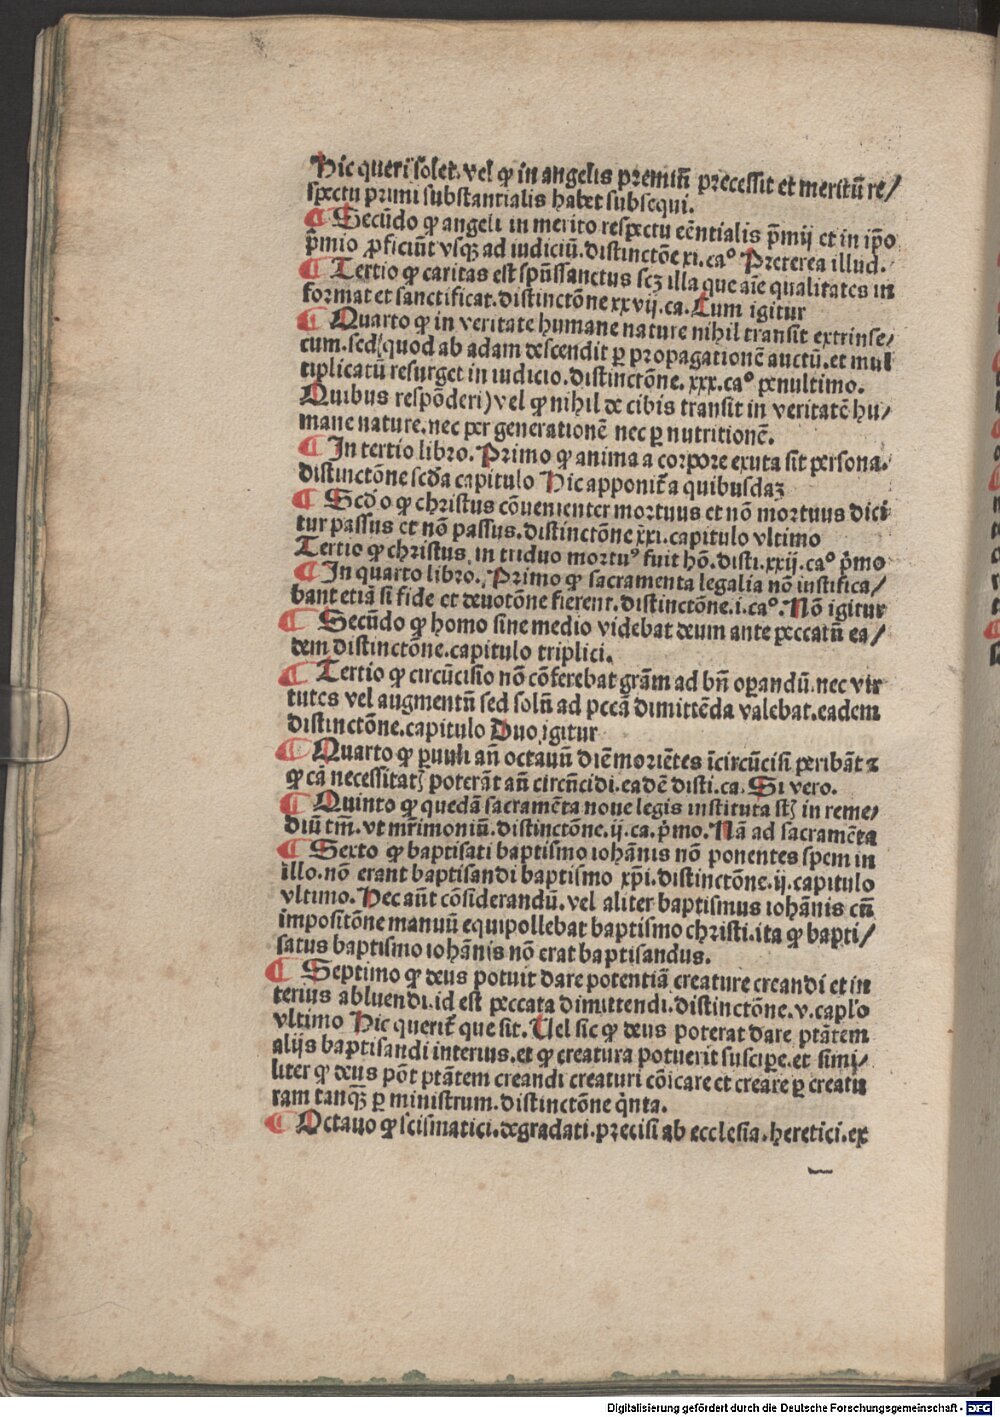 Hic queri solet. vel ꝙ in angelis premiū precessit et meritū re/
spectu primi substantialis habet subsequi.
¶ Secūdo ꝙ angeli in merito respectu eēntialis p̄mij et in ip̄o
p̄mio ꝓficiūt vsqꝫ ad iudiciū. distinctōe xi. ca° Preterea illud.
¶ Tertio ꝙ caritas est spūssanctus scꝫ illa que aīe qualitates in
format et sanctificat. distinctōne xxvij. ca. Cum igitur
¶ Quarto ꝙ in veritate humane nature nihil transit extrinse/
cum. sed quod ab adam descendit ꝑ propagationē auctū. et mul
tiplicatū resurget in iudicio. distinctōne. xxx. ca° penultimo.
Quibus respōderi) vel ꝙ nihil de cibis transit in veritatē hu/
mane nature. nec per generationē nec ꝑ nutritionē.
¶ In tertio libro. Primo ꝙ anima a corpore exuta sit persona.
distinctōne scd̄a capitulo Hic apponit̄ a quibusdaꝫ
¶ Scd̄o ꝙ christus cōuenienter mortuus et nō mortuus dici
tur passus et nō passus. distinctōne xxi. capitulo vltimo
Tertio ꝙ christus in triduo mortuꝰ fuit hō. disti. xxij. ca° p̄mo
¶ In quarto libro. Primo ꝙ sacramenta legalia nō iustifica/
bant etiā si fide et deuotōne fierent. distinctōne. i. ca°. Nō igitur
¶ Secūdo ꝙ homo sine medio videbat deum ante peccatū ea/
dem distinctōne. capitulo triplici.
¶ Tertio ꝙ circūcisio nō cōferebat grām ad bn̄ oꝑandū. nec vir
tutes vel augmentū sed solū ad pccā dimittēda valebat. eadem
distinctōne. capitulo Duo igitur
¶ Quarto ꝙ ꝑuuli an̄ octauū diē moriētes īcircūcisi peribāt ⁊
ꝙ cā necessitatꝭ poterāt an̄ circūcidi. eadē disti. ca. Si vero.
¶ Quinto ꝙ quedā sacramēta noue legis instituta sūt in reme/
diū tm̄. vt mr̄imoniū. distinctōne. ij. ca. p̄mo. Nā ad sacramēta
¶ Sexto ꝙ baptisati baptismo iohānis nō ponentes spem in
illo. nō erant baptisandi baptismo xp̄i. distinctōne. ij. capitulo
vltimo. Hec aūt cōsiderandū. vel aliter baptismus iohānis cū
impositōne manuū equipollebat baptismo christi. ita ꝙ bapti/
satus baptismo iohānis nō erat baptisandus.
¶ Septimo ꝙ deus potuit dare potentiā creature creandi et in
terius abluendi. id est peccata dimittendi. distinctōne. v. capl'o
vltimo Hic querit̄ que sit. Uel sic ꝙ deus poterat dare ptātem
alijs baptisandi interius. et ꝙ creatura potuerit suscipe. et simi/
liter ꝙ deus pōt ptātem creandi creaturi cōicare et creare ꝑ creatu
ram tanqꝫ ꝑ ministrum. distinctōne q̄nta.
¶ Octauo ꝙ scismatici. degradati. precisi ab ecclesia. heretici. ex
Digitalisierung gefördert durch die Deutsche Forschungsgemeinschaft - DFG